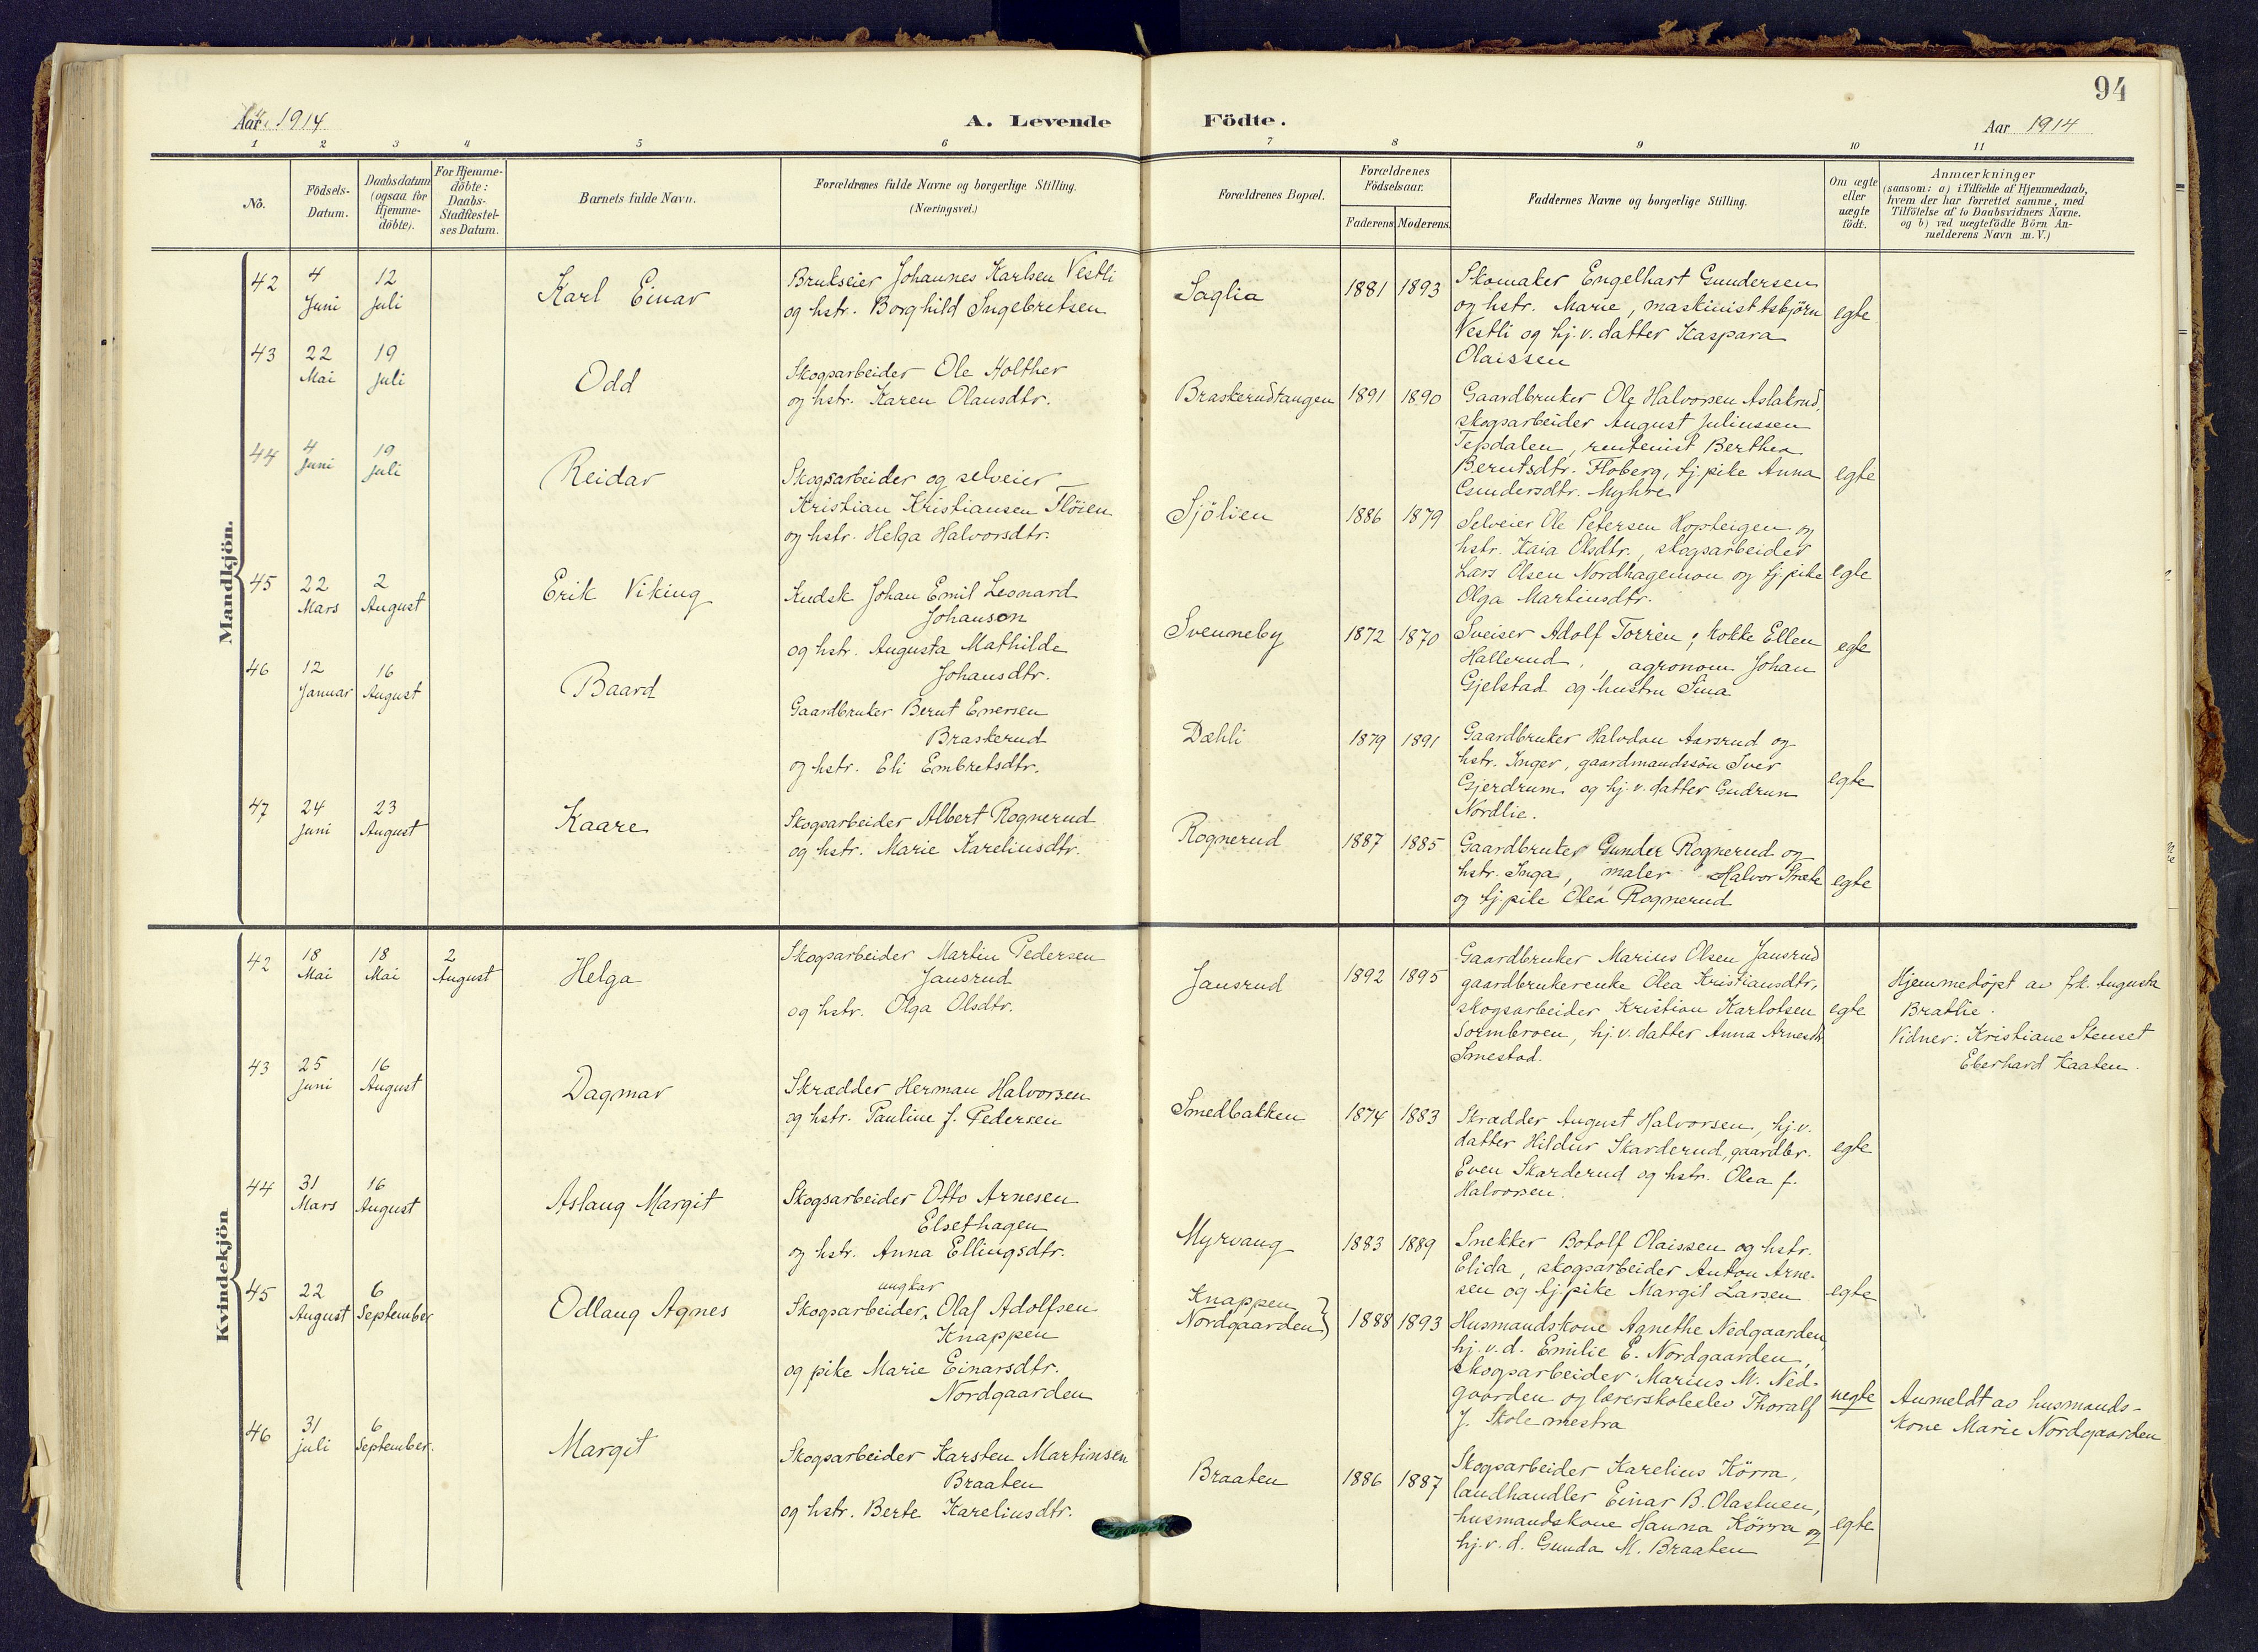 94
Aar 1914
A. Levende Födte.
Aar 1914
1 2 3 4 5 6 7 8 9 10 11
No.
Födsels-
Datum.
Daabsdatum
(ogsaa for
Hjemme-
döbte).
For Hjemme-
döbte:
Daabs-
Stadfæstel-
ses Datum.
Barnets fulde Navn.
Forældrenes fulde Navne og borgerlige Stilling.
(Næringsvei.)
Forældrenes Bopæl.
Forældrenes
Födselsaar.
Faderens Moderens.
Faddernes Navne og borgerlige Stilling.
Om ægte
eller
uægte
födt.
Anmærkninger
(saasom: a) i Tilfælde af Hjemmedaab,
hvem der har forrettet samme, med
Tilföielse af to Daabsvidners Navne.
og b) ved uægtefödte Börn An-
melderens Navn m. V.)
Mandkjön.
42
4
Juni
12
Juli
Karl Einar
Brukseier Johannes Karlsen Vestli
og hstr. Borghild Ingebretsen
Saglia
1881 1893
Skomaker Engelhart Gundersen
og hstr. Marie, maskinist Esbjörn
Vestli og hj. v. datter Kaspara
Olaissen
egte
43
22
Mai
19
Juli
Odd
Skogsarbeider Ole Holther
og hstr. Karen Olausdtr.
Braskerudtangen
1891 1890
Gaardbruker Ole Halvorsen Aslakrud,
skogsarbeider August Juliussen
Tepdalen, rentenist Berthea
Berntsdtr. Floberg, tj. pike Anna
Gundersdtr. Myhre
egte
44
4
Juni
19
Juli
Reidar
Skogsarbeider og selveier
Kristian Kristiansen Flöien
og hstr. Helga Halvorsdtr.
Sjölien
1886 1879
Selveier Ole Petersen Hopteigen og
hstr. Kaia Olsdtr., skogsarbeider
Lars Olsen Nordhagemon og tj. pike
Olga Martinsdtr.
egte
45
22
Mars
2
August
Erik Viking
Kudsk Johan Emil Leonard
Johanson
og hstr. Augusta Mathilde
Johansdtr.
Svenneby
1872 1870
Sveiser Adolf Torrén, kokke Ellen
Hallerud, agronom Johan
Gjelstad og hustru Sina
egte
46
12
Januar
16
August
Baard
Gaardbruker Bernt Enersen
Braskerud
og hstr. Eli Embretsdtr.
Dæhli
1879 1891
Gaardbruker Halvdan Aarsrud og
hstr. Inger, gaardmandssön Iver
Gjerdrum og hj. v. datter Gudrun
Nordlie.
egte
47
24
Juni
23
August
Kaare
Skogsarbeider Albert Rognerud
og hstr. Marie Kareliusdtr.
Rognerud
1887 1885
Gaardbruker Gunder Rognerud og
hstr. Inga, maler Halvor Stræte
og tj. pike Olea Rognerud
egte
Kvindekjön
42
18
Mai
18
Mai
2
August
Helga
Skogsarbeider Martin Pedersen
Jansrud
og hstr. Olga Olsdtr.
Jansrud
1892 1895
Gaardbruker Marius Olsen Jansrud
gaardbrukerenke Olea Kristiansdtr,
skogsarbeider Kristian Karlotsen
Sormbroen, hj. v. datter Anna Arnesdtr
Smestad.
egte
Hjemmedøpt av frk. Augusta
Brathie.
Vidner: Kristiane Stenset
Eberhard Kaaten.
43
25
Juni
16
August
Dagmar
Skrædder Herman Halvorsen
og hstr. Pauline f. Pedersen
Smedbakken
1874 1883
Skrædder August Halvorsen, hj. v.
datter Hildur Skarderud, gaardbr.
Even Skarderud og hstr. Olea f.
Halvorsen.
egte
44
31
Mars
16
August
Aslaug Margit
Skogsarbeider Otto Arnesen
Elsethagen
og hstr. Anna Ellingsdtr.
Myrvang
1883 1889
Snekker Botolf Olaissen og hstr.
Elida, skogsarbeider Anton Arne-
sen og tj. pike Margit Larsen
egte
45
22
August
6
September
Odlaug Agnes
ungkar
Skogsarbeider, Olaf Adolfsen
Knappen
og pike Marie Einarsdtr.
Nordgaarden
Knappen
Nordgaarden
1888 1893
Husmandskone Agnethe Nedgaarden,
hj. v. d. Emilie E. Nordgaarden,
skogsarbeider Marius M. Ned-
gaarden og lærerskoleelev Thoralf
J. Skolemestra
uegte
Anmeldt av husmands-
kone Marie Nordgaarden
46
31
juli
6
September.
Margit
Skogsarbeider Karsten Martinsen
Braaten
og hstr. Berte Kareliusdtr.
Braaten
1886 1887
Skogsarbeider Karelius Körra,
landhandler Einar B. Olastuen,
husmandskone Hanna Körra og
hj. v. d. Gunda M. Braaten
egte